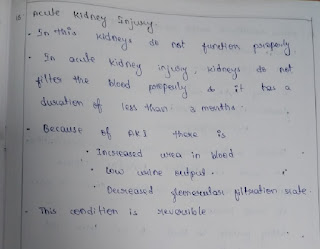 Acute Kidney Injury:
• In this kidneys do not function properly
• In acute kidney injury, kidneys do not
filter the blood properly & it has a
duration of less than 3 months.
• Because of AKI there is
• Increased urea in blood
• Low urine output.
• Decreased glomerular filtration rate
• This condition is reversible